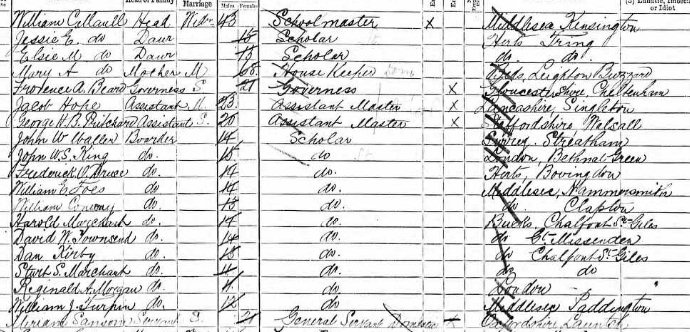 William Head Wid 43 Schoolmaster x Middlesex Kensington
Jessie E. do Daur 15 Scholar Herts Tring
Elsie M. do Daur 13 Scholar do do
Mary A do Mother M 68 House Keeper Dom Beds, Leighton Buzzard
Florence A. Governess S 21 Governess x Gloucestershire Cheltenham
Jacob Hope Assistant 23 Assistant Master x Lancashire, Singleton
George K. B. Pritchard Assistant S. 20 Assistant Master x Staffordshire, Walsall
John W Waller Boarder 14 Scholar Surrey, Streatham
John W. S. King do. 15 do London, Bethnal Green
Frederick do. 14 do. Herts, Bovingdon
William do. 14 do. Middlesex, Hammersmith
William do. 13 do. do. Clapton
Harold Marchant do. 14 do. Bucks, Chalfont St Giles
David W. Townsend do. 14 do. do Gt. Missenden
Dan Kirby do. 15 do. do Chalfont St Giles
S. Marchant do. 11 do do do
Reginald A. Morgan do. 11 do London "
William J. Turpin do. 12 do. Middlesex Paddington
General Servant Domestic